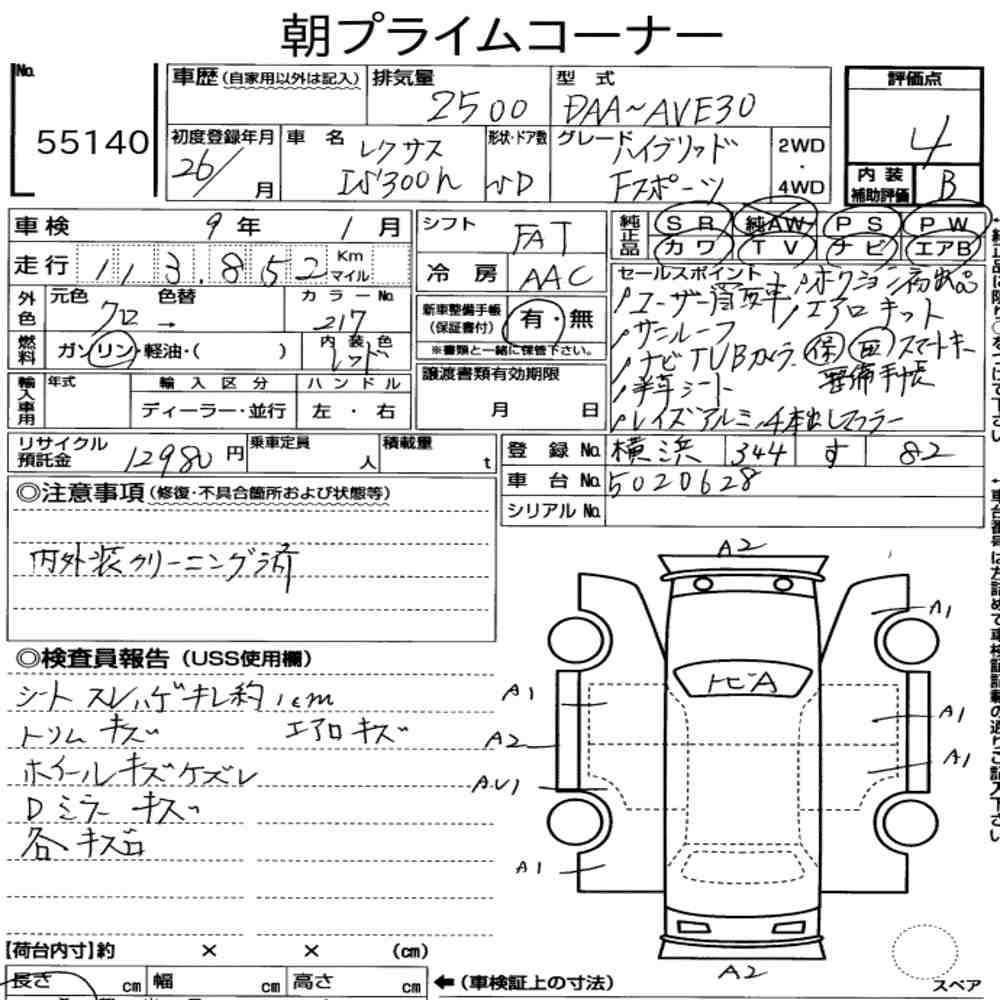 朝プライムコーナー
No.
55140
車歴(自家用以外は記入)
排気量
2500
型 式
DAA～AVE30
評価点
4
初度登録年月
26/ 月
車 名
レクサス
IS300h
形状・ドア数
グレード
ハイブリッド
Fスポーツ
2WD
・
4WD
内 装
補助評価
B
車検 9 年 1 月
シフト FAT
純正品
S R 純AW P S P W
カワ T V ナビ エアB
走行 113,852 Km マイル
冷 房 AAC
外色
元色 クロ 色替 →
カラーNo. 217
新車整備手帳
(保証書付)
有・無
※書類と一緒に保管下さい。
燃料
ガソリン・軽油・( )
内装色
レッド
セールスポイント
ユーザー買取車 オークション初出品
サンルーフ エアロキット
ナビTVBカメラ 保 田 スマートキー
半革シート 整備手帳
レイズアルミ 4本出しマフラー
輸入車用
年式
輸 入 区 分
ハ ン ド ル
ディーラー・並行
左 ・ 右
譲渡書類有効期限
月 日
リサイクル
預託金
12980 円
乗車定員
人
積載量
t
登 録 No. 横浜 344 す 82
車 台 No. 5020628
シリアル No.
◎注意事項(修復・不具合箇所および状態等)
内外装クリーニング済
◎検査員報告(USS使用欄)
シート スレ ハゲ キレ 約1cm
トリム キズ エアロ キズ
ホイール キズ ケズレ
Dミラー キズ
各 キズ
A2
A1
トビA
A1
A1
A2
A1
AU1
A1
A2
スペア
【荷台内寸】約 × × (cm)
長さ cm 幅 cm 高さ cm
←(車検証上の寸法)